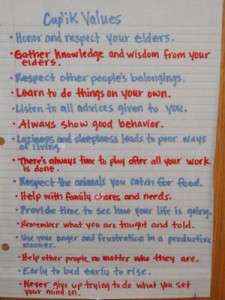 Cup'ik Values
• Honor and respect your elders.
• Gather knowledge and wisdom from your
elders.
• Respect other people's belongings.
• Learn to do things on your own.
• Listen to all advices given to you.
• Always show good behavior.
• Laziness and sleepiness leads to poor ways
of living.
• There's always time to play after all your work
is done.
• Respect the animals you catch for food.
• Help with family chores and needs.
• Provide time to see how your life is going.
• Remember what you are taught and told.
• Use your anger and frustration in a productive
manner.
• Help other people no matter who they are.
• Early to bed early to rise.
• Never give up trying to do what you set
your mind on.